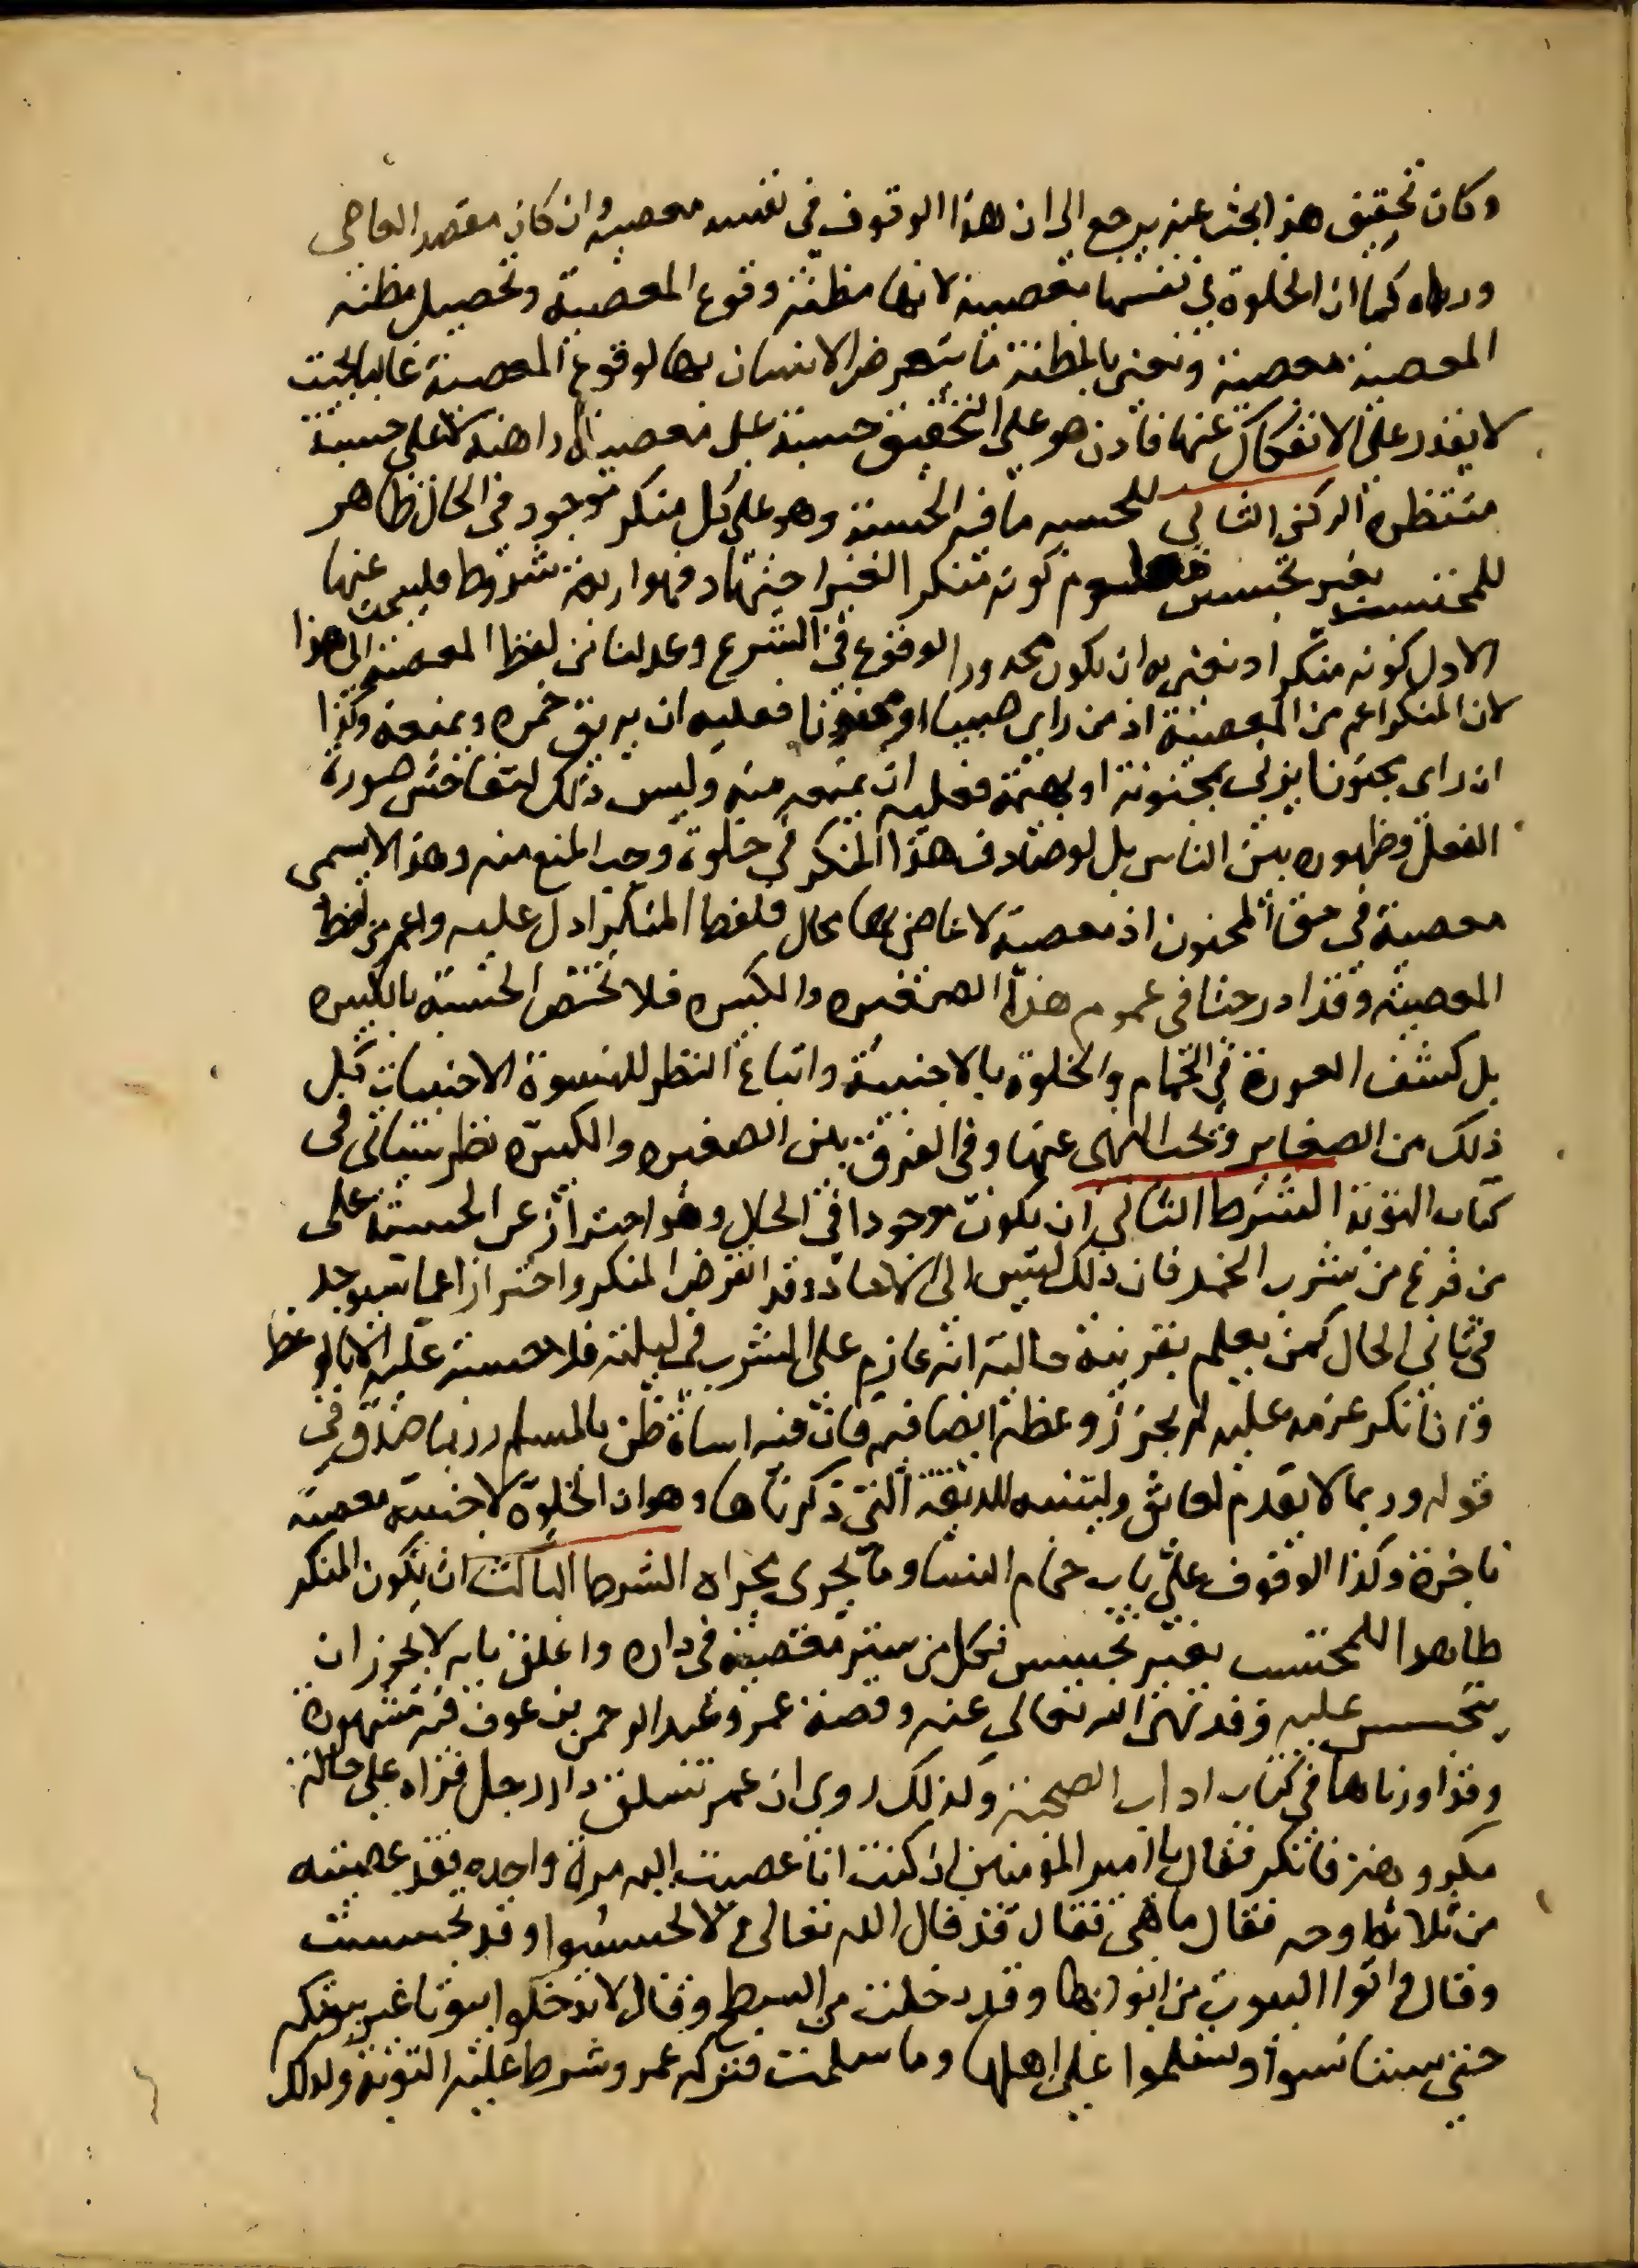 وكان تحقيق هذا البحث عنه يرجع الى ان هذا الوقوف في نفسه معصية وان كان مقصد العاصى
وراه كما ان الخلوة في نفسها معصية لانها مظنة وقوع المعصية وتحصيل مظنه
المعصية معصية ونعنى بالمظنة ما يتعرض الانسان بها لوقوع المعصية غالبا بحيث
لا يقدر على الانفكاك عنها فاذن هو على التحقيق حسبة على معصية راهنه لا على حسبة
منتظره الركن الثانى للحسبه ما فيه الحسبة وهو على كل منكر موجود في الحال ظاهر
للمحتسب بغير تجسس معلوم كونه منكر الغير اجتهاد فهو اربعة شروط فليبحث عنها
الاول كونه منكرا ونعنى به ان يكون محذور الوقوع في الشرع وعدلنا من لفظ المعصية الى هذا
لان المنكر اعم من المعصية اذ من راى صبيا او مجنونا فعليه ان يريق خمره ويمنعه وكذا
ان راى مجنونا يزنى بمجنونة او بهيمة فعليه ان يمنعه منه وليس ذلك لتفاحش صورة
الفعل وظهوره بين الناس بل لو صادف هذا المنكر في خلوة وجب المنع منه وهذا لا يسمى
معصية في حق المجنون اذ معصية لا عاصى بها محال فلفظ المنكر ادل عليه واعم من لفظ
المعصية وقد ادرجنا في عموم هذا الصغيره والكبيره فلا تختص الحسبة بالكبيره
بل كشف العورة في الحمام والخلوة بالاجنبية واتباع النظر للنسوة الاجنبيات كل
ذلك من الصغاير ويجب النهى عنها وفي الفرق بين الصغيره والكبيره نظر سياتى في
كتاب التوبة الشرط الثانى ان يكون موجودا في الحال وهو احتراز عن الحسبة على
من فرغ من شرب الخمر فان ذلك ليس الى الاحاد وقد انقرض المنكر واحترازا عما سيوجد
في ثانى الحال كمن يعلم بقرينة حالية انه عازم على الشرب في ليلته فلا حسبة عليه الا بالوعظ
وان انكر عزمه عليه لم يجز وعظه ايضا فيه فان فيه اساة ظن بالمسلم وربما صدق في
قوله وربما لا يقدم لعايق وليتنبه للدقيقة التى ذكرناها وهو ان الخلوة لاجنبية معصية
ناجزة وكذا الوقوف على باب حمام النسا وما يجرى مجراه الشرط الثالث ان يكون المنكر
ظاهرا للمحتسب بغير تجسس فكل من ستر معصية في داره واغلق بابه لا يجوز ان
يتجسس عليه وقد نهى الله تعالى عنه وقصة عمر وعبد الرحمن بن عوف فيه مشهورة
وقد اوردناها في كتاب اداب الصحبة وكذلك روى ان عمر تسلق دار رجل فراه على حالة
مكروهة فانكر فقال يا امير المؤمنين ان كنت انا عصيت الله مرة واحده فقد عصيته
من ثلاثة اوجه فقال ما هى فقال قد قال الله تعالى لا تجسسوا وقد تجسست
وقال واتوا البيوت من ابوابها وقد دخلت من السطح وقال لا تدخلوا بيوتا غير بيوتكم
حتى تستانسوا وتسلموا على اهلها وما سلمت فتركه عمر وشرط عليه التوبة ولذلك